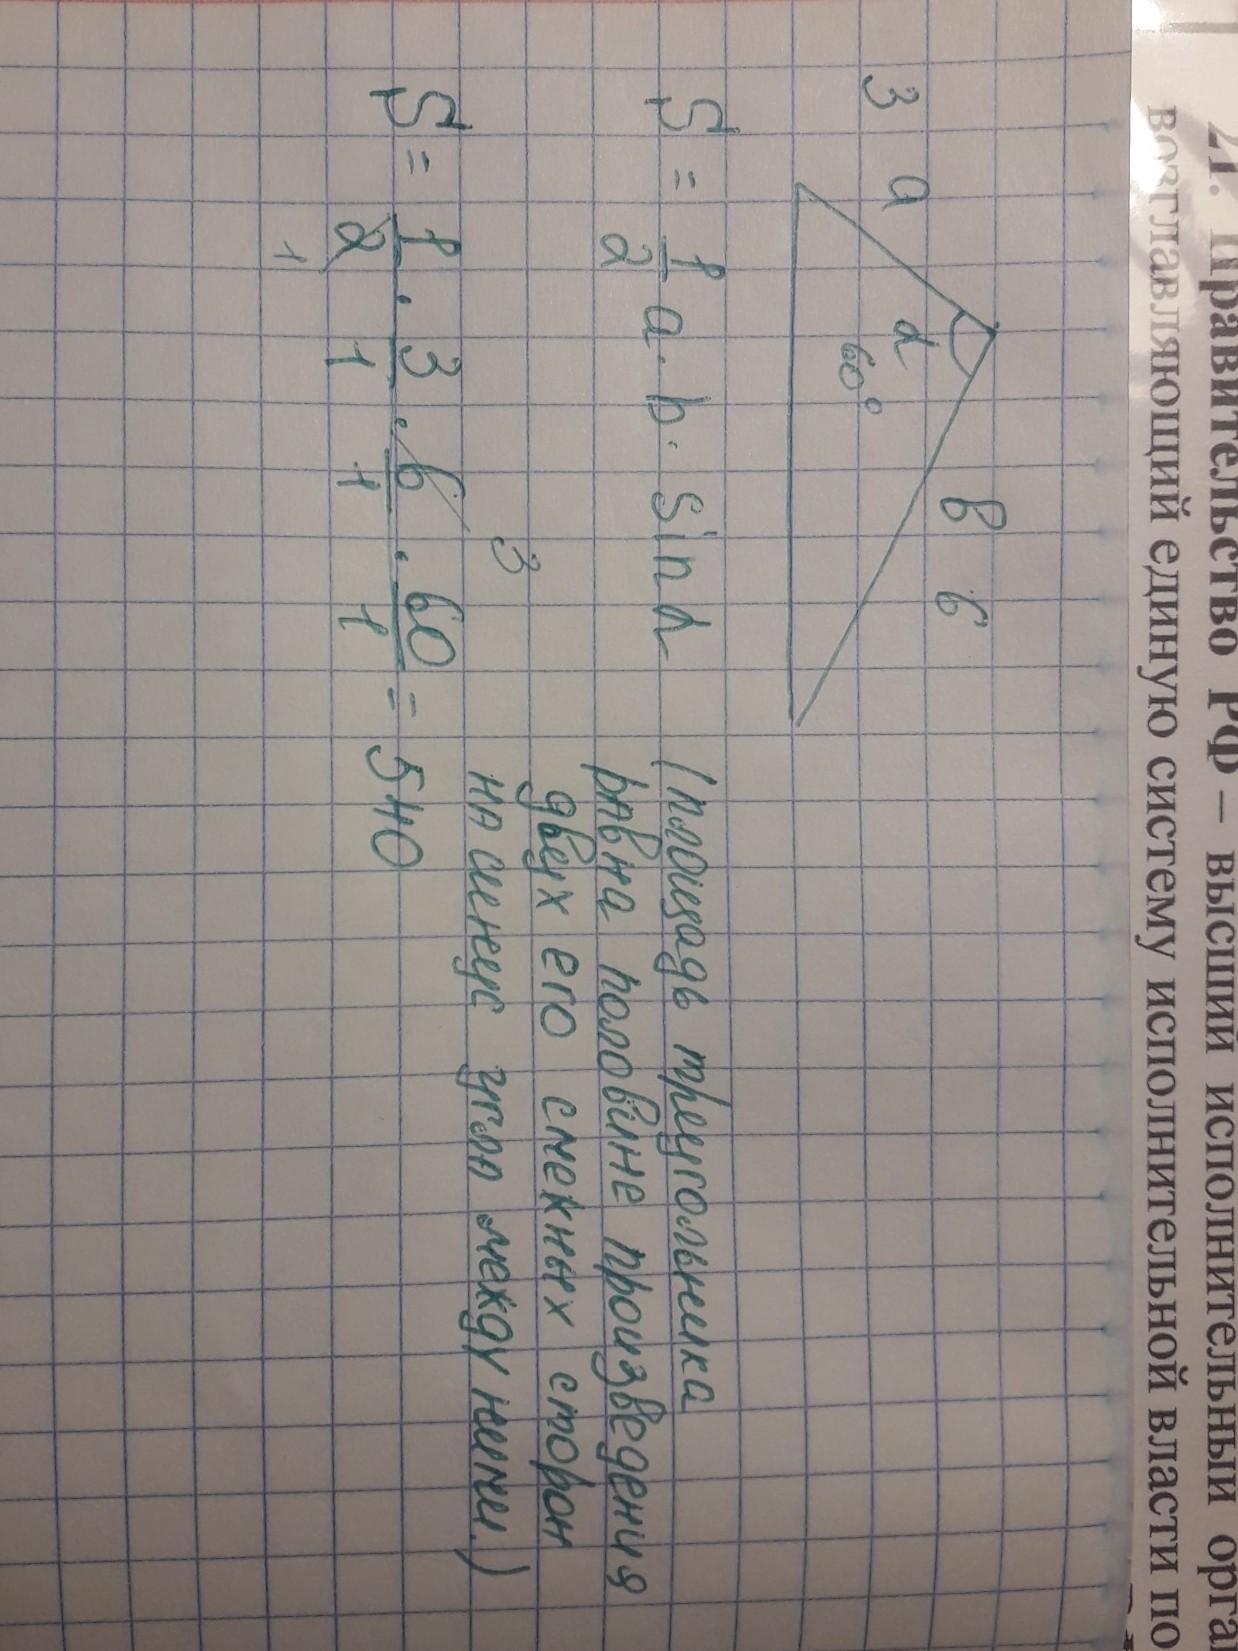 21. Правительство РФ – высший исполнительный орган
возглавляющий единую систему исполнительной власти по
3 a
b 6
α
60°
S = 1/2 a · b · sin α
(площадь треугольника
равна половине произведения
двух его смежных сторон
на синус угла между ними.)
3
S = 1/2 · 3/1 · 6/1 · 60/1 = 540
1